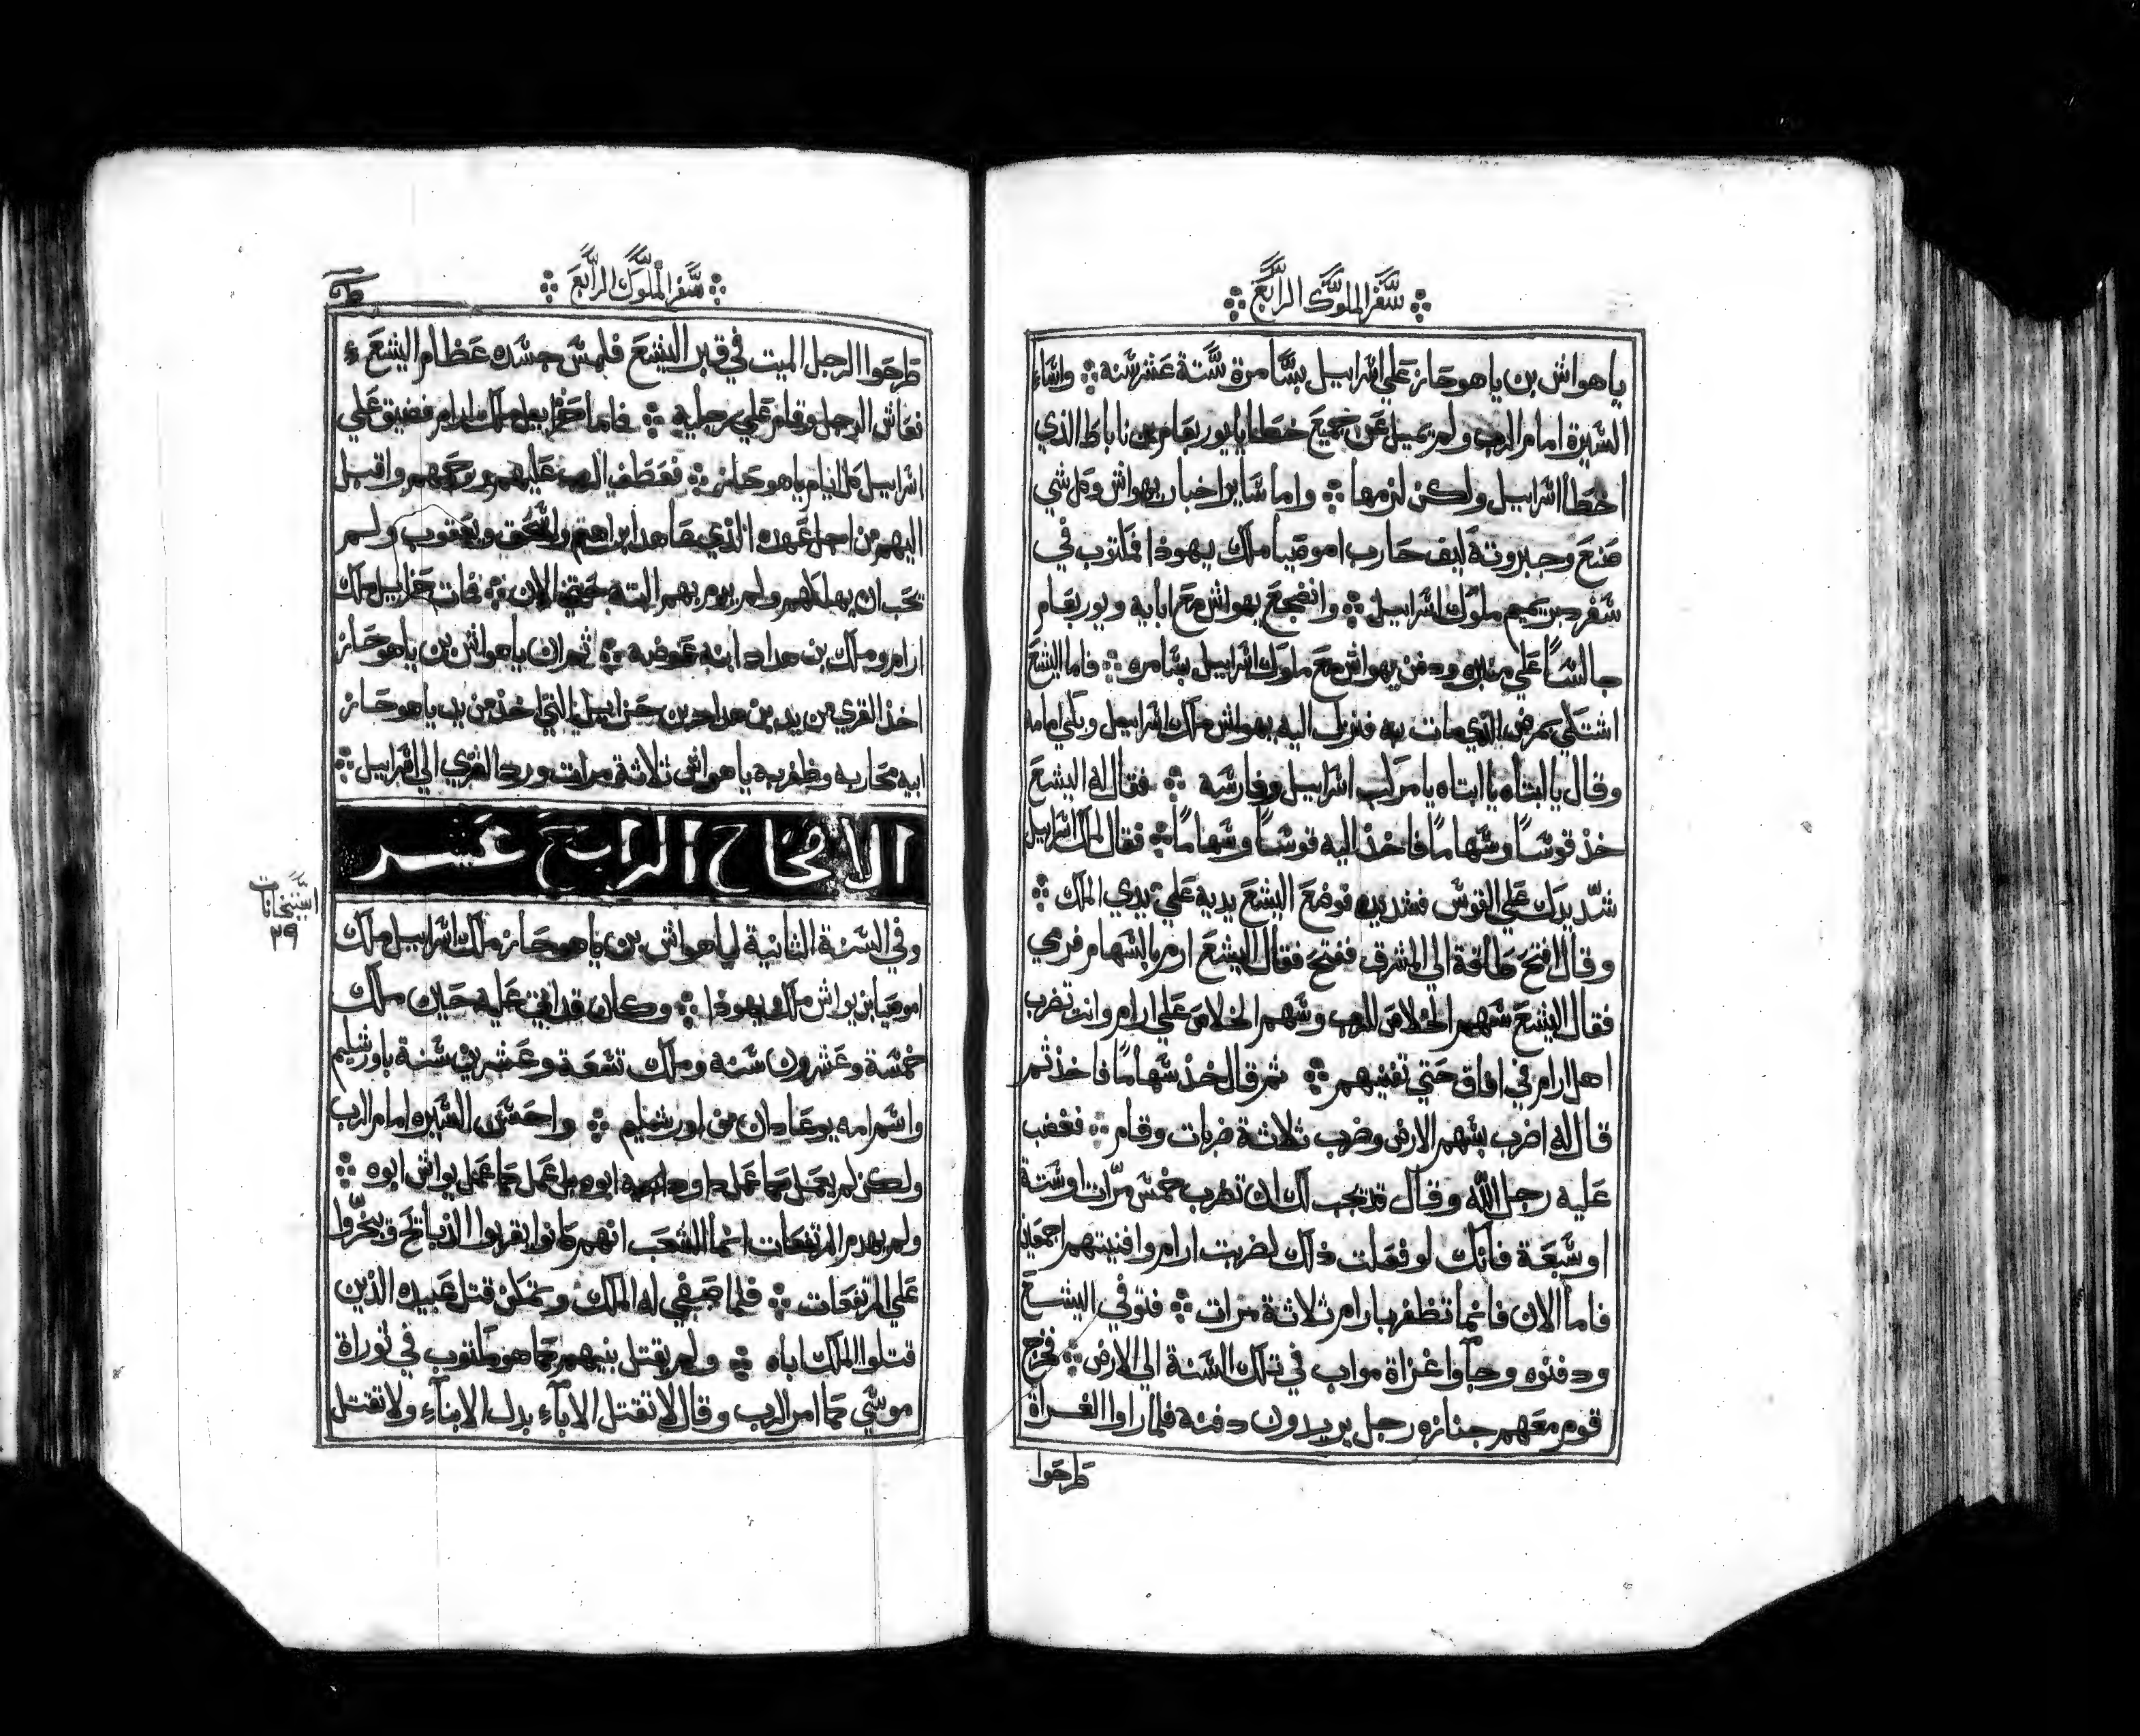 سفر الملوك الرابع
ياهواش بن ياهوحاز علي اسراييل بسامرة ستة عشر سنه واساء
السيرة امام الرب ولم يميل عن جميع خطايا يوربعام بن ناباط الذي
اخطا اسراييل ولكن لزمها واما ساير اخبار يهواش وكل شي
صنع وجبروته كيف حارب اموصيا ملك يهوذا فمكتوب في
سفر دبريميم ملوك اسراييل وانضجع يهواش مع ابايه ويوربعام
جالسًا علي منبره ودفن يهواش مع ملوك اسراييل بسامره فاما اليشع
اشتكي بمرض الذي مات به فنزل اليه يهواش ملك اسراييل وبكي امامه
وقال يا ابتاه يا ابتاه يا مركب اسراييل وفارسه فقال له اليشع
خذ قوسًا وسهامًا فاخذ اليه قوسًا وسهامًا فقال لملك اسراييل
شدّ يدك علي القوس فشد يده فوضع اليشع يديه علي يدي الملك
وقال افتح طاقة الي المشرق ففتح فقال اليشع ارم بالسهام فرمي
فقال اليشع سهم الخلاص للرب وسهم الخلاص علي ارام وانت تضرب
اهل ارام في افاق حتي تفنيهم ثم قال خذ سهامًا فاخذ ثم
قال له اضرب بسهم الارض وضرب ثلاثة ضربات وقام فغضب
عليه رجل الله وقال قد يجب لك ان تضرب خمس مرّات او ستة
او سبعة فانك لو فعلت ذلك لضربت ارام وافنيتهم اجمعين
فاما الان فانما تظفر بارام ثلاثة مرات فتوفي اليشع
ودفنوه وجآوا غزاة مواب في تلك السنة الي الارض فخرج
قوم معهم جنازه رجل يريدون دفنه فلما راوا الغزاة
طرحوا
سفر الملوك الرابع
طرحوا الرجل الميت في قبر اليشع فلمس جسده عظام اليشع
فعاش الرجل وقام علي رجليه فاما حزاييل ملك ارام فضيق علي
اسراييل كل ايام ياهوحاز فعطف الرب عليهم ورحمهم واقبل
اليهم من اجل عهده الذي عاهد ابراهيم واسحق ويعقوب ولم
يحب ان يهلكهم ولم يرم بهم البتة حتي الان فمات حزاييل ملك
ارام وملك بن هداد ابنه عوضه ثم ان ياهواش بن ياهوحاز
اخذ القري من يد بن هداد بن حزاييل التي اخذ من يد ياهوحاز
ابيه محاربه وظفر به ياهواش ثلاثة مرات ورد القري الي اسراييل
الاصحاح الرابع عشر
وفي السنة الثانية لياهواش بن ياهوحاز ملك اسراييل ملك
اموصيا بن يواش ملك يهوذا وكان قد اتي عليه حين ملك
خمسة وعشرون سنه وملك تسعة وعشرين سنة باورشليم
واسم امه يوعادان من اورشليم واحسن السيره امام الرب
ولكن لم يعمل كما عمل داود ابوه بل عمل كما عمل يواش ابوه
ولم يهدم المرتفعات انما الشعب انهم كانوا يقربوا الذبايح ويبخّروا
علي المرتفعات فلما صفي له الملك وتمكن قتل عبيده الذين
قتلوا الملك اباه ولم يقتل بنيهم كما هو مكتوب في توراة
موسي كما امر الرب وقال لا تقتل الابآء بدل الابنآء ولا تقتل
٢٩